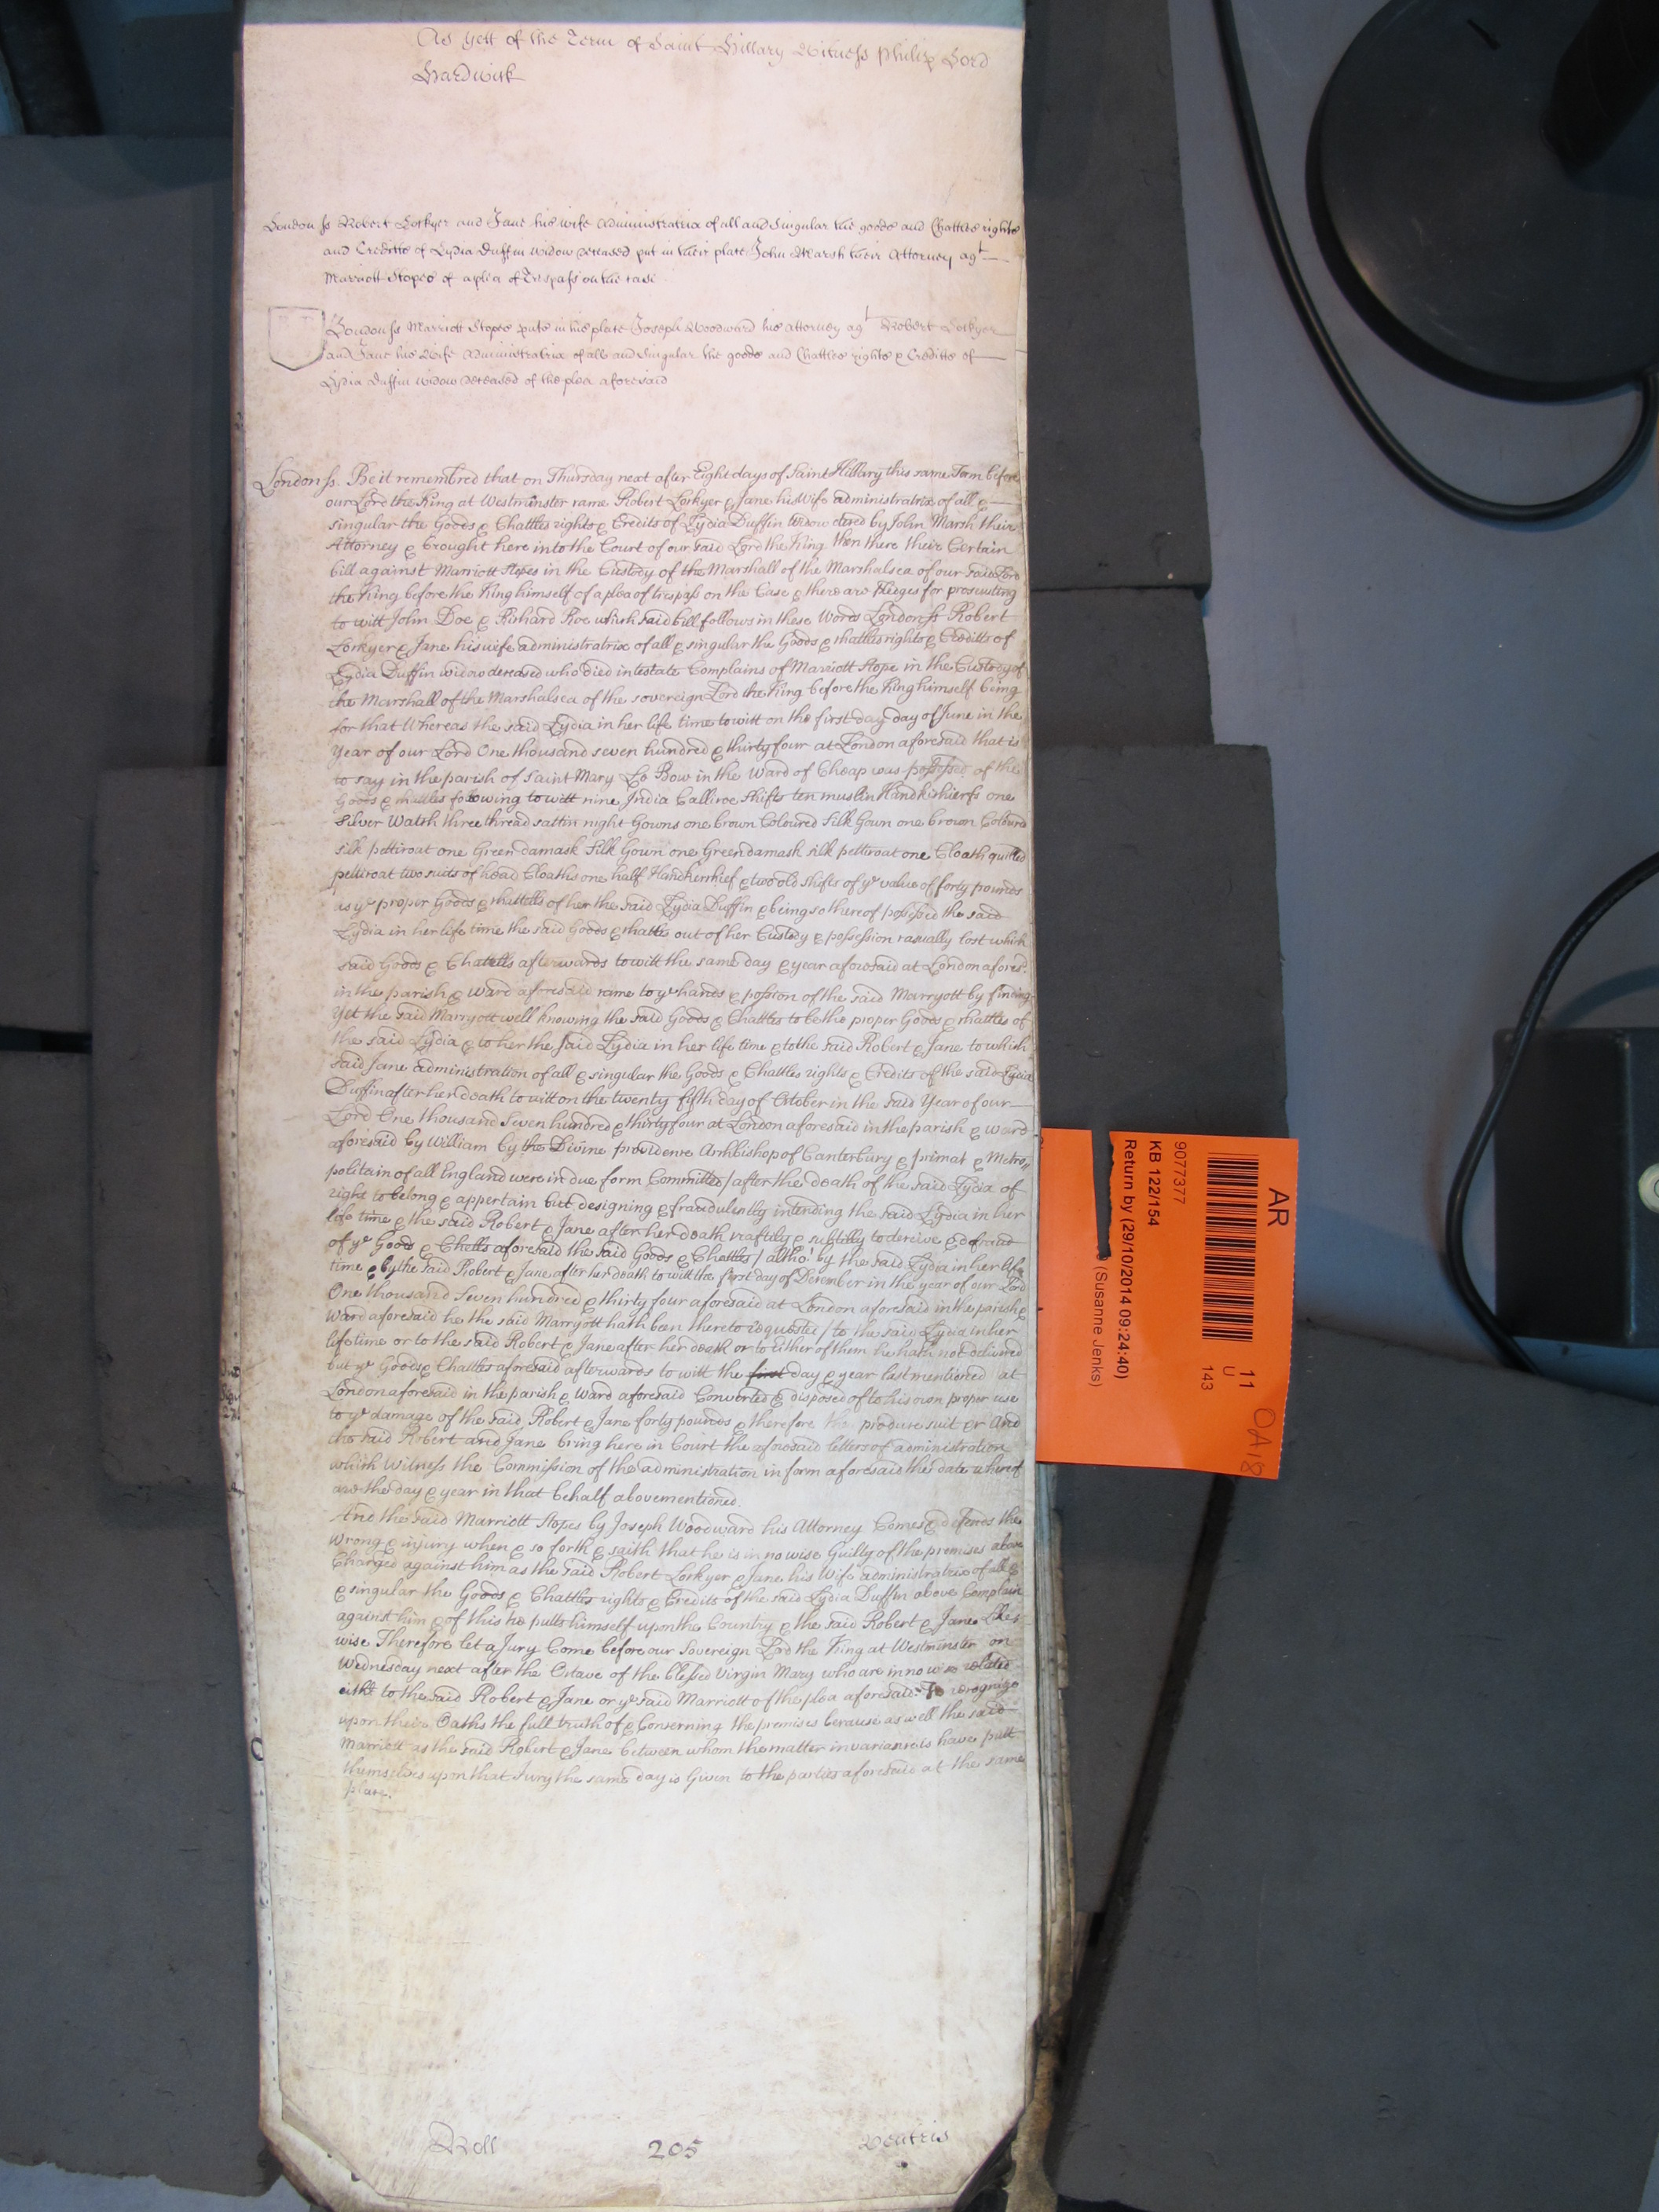 As yett of the Term of Saint Hillary Witness Philip Lord
Hardwick
London ss Robert Lockyer and Jane his wife Administratrix of all and Singular the goods and Chattles rights
and Creditts of Lydia Duffin widow deceased put in their place John Marsh their Attorney agt
Marriott Stopes of a plea of Trespass on the case
London ss Marriott Stopes puts in his place Joseph Woodward his Attorney agt Robert Lockyer
and Jane his Wife Administratrix of all and Singular the goods and Chattles rights & Creditts of
Lydia Duffin widow deceased of the plea aforesaid
London ss. Be it remembred that on Thursday next after Eight days of Saint Hillary this same Term before
our Lord the King at Westminster came Robert Lockyer & Jane his Wife administratrix of all &
singular the Goods & Chattles rights & Credits of Lydia Duffin widow deced by John Marsh their
Attorney & brought here into the Court of our said Lord the King then there their Certain
bill against Marriott Stopes in the Custody of the Marshall of the Marshalsea of our said Lord
the King before the King himself of a plea of trespass on the Case & there are Pledges for prosecuting
to witt John Doe & Richard Roe which said bill follows in these Words London ss Robert
Lockyer & Jane his wife administratrix of all & singular the Goods & chattles rights & Creditts of
Lydia Duffin widow deceased who died intestate Complains of Marriott Stope in the Custody of
the Marshall of the Marshalsea of the sovereign Lord the King before the King himself being
for that Whereas the said Lydia in her life time to witt on the first day day of June in the
Year of our Lord One thousand seven hundred & thirty four at London aforesaid that is
to say in the parish of Saint Mary Le Bow in the Ward of Cheap was possessed of the
Goods & chattles following to witt nine India Callicoe Shifts ten muslin Handkichierfs one
Silver Watch three thread sattin night Gowns one brown Coloured Silk Gown one brown Coloured
silk petticoat one Green damask Silk Gown one Green damask silk petticoat one Cloath quilted
petticoat two suits of head Cloaths one half Handkerchief & two old shifts of ye value of forty pounds
as ye proper Goods & chattells of her the said Lydia Duffin & being so thereof possessed the said
Lydia in her life time the said Goods & chattles out of her Custody & possession casually lost which
said Goods & Chatells afterwards to witt the same day & year aforesaid at London afores.d
in the parish & Ward aforesaid came to ye hands & possion of the said Marryott by finding
Yet the said Marryott well knowing the said Goods & Chattles to be the proper Goods & chattles of
the said Lydia & to her the said Lydia in her life time & to the said Robert & Jane to which
said Jane administration of all & singular the Goods & Chattles rights & Credits of the said Lydia
Duffin after her death to witt on the twenty fifth day of October in the said Year of our
Lord One thousand Seven hundred & thirty four at London aforesaid in the parish & ward
aforesaid by William by the Divine providence Archbishop of Canterbury & primat & Metro
politain of all England were in due form Committed / after the death of the said Lydia of
right to belong & appertain but designing & fraudulently intending the said Lydia in her
life time & the said Robert & Jane after her death craftily & subtilly to deceive & defraud
of ye Goods & Chells aforesaid the said Goods & Chattles / altho' by the said Lydia in her life
time & by the said Robert & Jane after her death to witt the first day of December in the year of our Lord
One thousand Seven hundred & thirty four aforesaid at London aforesaid in the parish &
Ward aforesaid he the said Marryott hath been thereto requested / to the said Lydia in her
life time or to the said Robert & Jane after her death or to Either of them he hath not delivered
but ye Goods & Chattles aforesaid afterwards to witt the first day & year last mentioned at
London aforesaid in the parish & Ward aforesaid Converted & disposed of to his own proper use
to ye damage of the said Robert & Jane forty pounds & therefore they produce suit &c And
the said Robert and Jane bring here in Court the aforesaid letters of administration
which Witness the Commission of the administration in form aforesaid the date whereof
are the day & year in that behalf abovementioned.
And the said Marriott Stopes by Joseph Woodward his Attorney Comes & defends the
Wrong & injury when & so forth & saith that he is in no wise Guilty of the premises above
Charged against him as the said Robert Lockyer & Jane his Wife administratrix of all &
& singular the Goods & Chattles rights & Credits of the said Lydia Duffin above Complain
against him & of this he putts himself upon the Country & the said Robert & Jane Like
wise Therefore let a Jury Come before our Sovereign Lord the King at Westminster on
Wednesday next after the Octave of the blessed Virgin Mary who are in no wise related
eithr to the said Robert & Jane or ye said Marriott of the plea aforesaid To recognize
upon their Oaths the full truth of & Conserning the premises because as well the said
Marriott as the said Robert & Jane between whom the matter in variance is have putt
themselves upon that Jury the same day is Given to the parties aforesaid at the same
place.
Roll 205 Ventris
AR
11
U
143
9077377
KB 122/154
Return by (29/10/2014 09:24:40)
(Susanne Jenks)
OA18